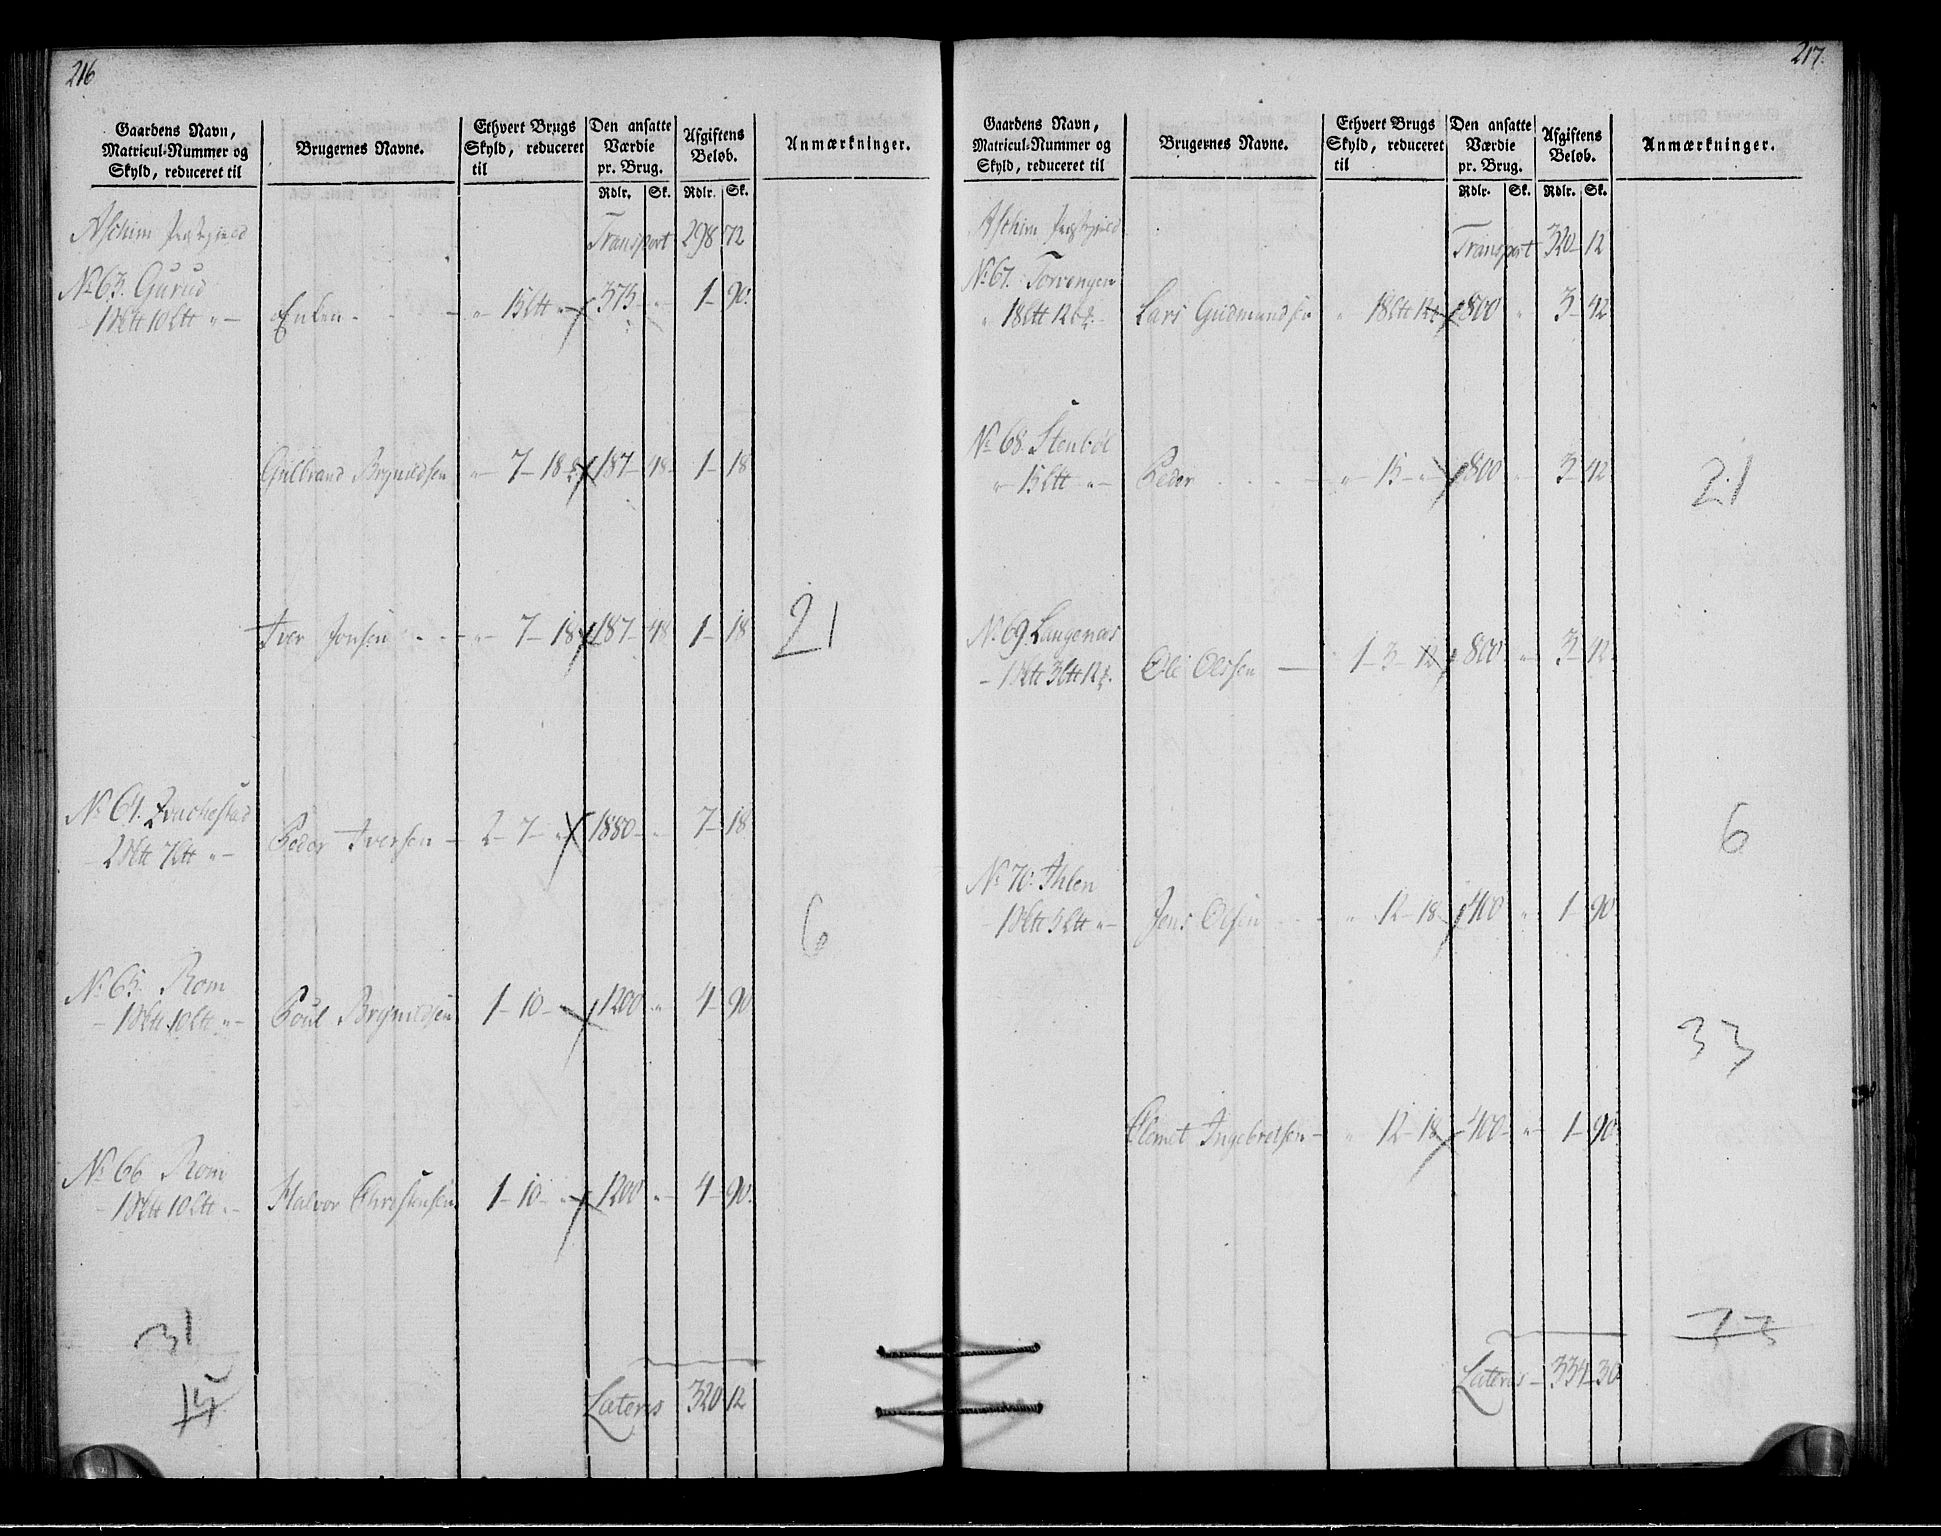 216
Gaardens Navn, Matricul-Nummer og Skyld, reduceret til | Brugernes Navne. | Ethvert Brugs Skyld, reduceret til | Den ansatte Værdie pr. Brug. Rdlr. Sk. | Afgiftens Beløb. Rdlr. Sk. | Anmærkninger.
Aschim Præstegield | Transport 298 72
No 63. Gurud
Enken - - - " 15 375 - 1 - 90.
Gulbrand Brynildsen - " 7 - 18 187 - 48 - 1 - 18
Iver Jonsen - - " 7 - 18 187 - 48 1 - 18
21
No 64.
Peder Iversen - 2 - 7 - 1880 - 7 - 18
6
No 65. Rom
Poul Brynildsen 1 - 10 - 1200 " 4 - 90
No 66 Rom
Halvor Christensen 1 - 10 - " 1200 " 4 - 90.
31
Lateris 320 12
217.
Gaardens Navn, Matricul-Nummer og Skyld, reduceret til | Brugernes Navne. | Ethvert Brugs Skyld, reduceret til | Den ansatte Værdie pr. Brug. Rdlr. Sk. | Afgiftens Beløb. Rdlr. Sk. | Anmærkninger.
Aschim Præstegield | Transport 320 - 12
No 67. Torvengen
Lars Gudmundsen " 18 12 800 " 3 - 42
No 68. Stenbøl
Peder - - - " 15 - " 800 " 3 - 42
21
No 69. Langenæs
Ole Olssen - 1 - 3 - 12 800 " 3 - 42
6
No 70. Ihlen
Jens Olsen - - " 12 - 18 400 " 1 - 90
33
Clemet Ingebretsen - " 12 - 18 400 - " 1 - 90
Lateris - 334 - 30